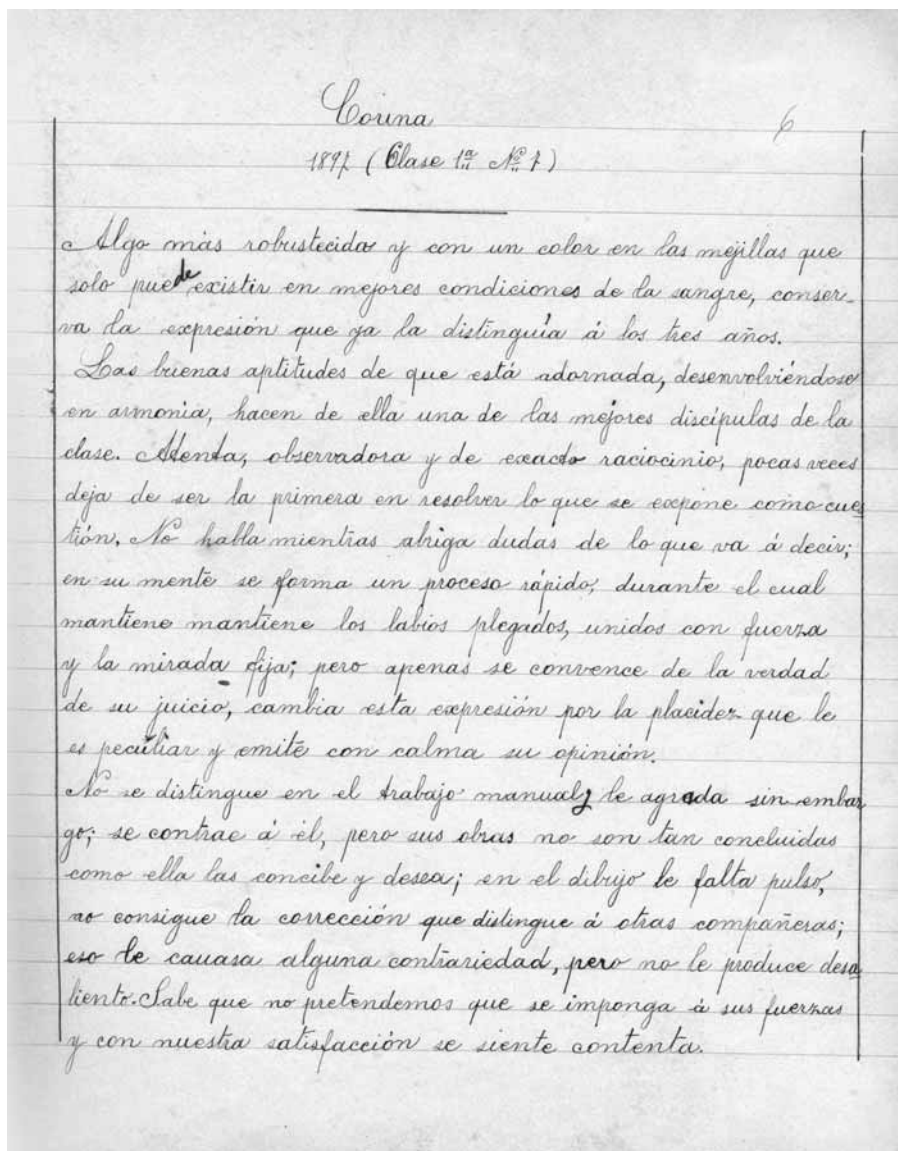 Corina
6
1897 (Clase 1ª Nº 7)
Algo más robustecida y con un color en las mejillas que
solo puede existir en mejores condiciones de la sangre, conser-
va la expresión que ya la distinguía á los tres años.
Las buenas aptitudes de que está adornada, desenvolviéndose
en armonia, hacen de ella una de las mejores discípulas de la
clase. Atenta, observadora y de exacto raciocinio, pocas veces
deja de ser la primera en resolver lo que se expone como cues
tión. No habla mientras abriga dudas de lo que va á decir;
en su mente se forma un proceso rápido, durante el cual
mantiene mantiene los labios plegados, unidos con fuerza
y la mirada fija; pero apenas se convence de la verdad
de su juicio, cambia esta expresión por la placidez que le
es peculiar y emite con calma su opinión.
No se distingue en el trabajo manual, le agrada sin embar
go; se contrae á él, pero sus obras no son tan concluidas
como ella las concibe y desea; en el dibujo le falta pulso,
no consigue la corrección que distingue á otras compañeras;
eso le cauasa alguna contrariedad, pero no le produce desa
liento. Sabe que no pretendemos que se imponga á sus fuerzas
y con nuestra satisfacción se siente contenta.